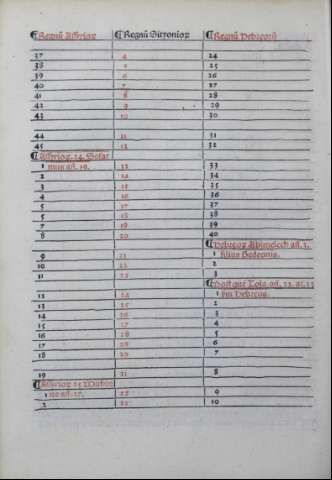 ¶Regnū Assyrioꝝ ¶Regnū Sicyonioꝝ ¶Regnū Hebreorū
37 4 24
38 5 25
39 6 26
40 7 27
41 8 28
42 9 29
43 10 30
44 11 31
45 12 32
¶Assyrioꝝ 14. Sosar
1 mus añ. 19. 13 33
2 14 34
3 15 35
4 16 36
5 17 37
6 18 38
7 19 39
8 20 40
¶Hebreoꝝ Abimelech añ. 3.
9 21 1 filius Gedeonis.
10 22 2
11 23 3
¶Post quē Tola. añ. 22. añ. 23
12 24 1 ſm Hebreos.
13 25 2
14 26 3
15 27 4
16 5
17 6
18 7
19 8
¶Assyrioꝝ 15
9
2 10